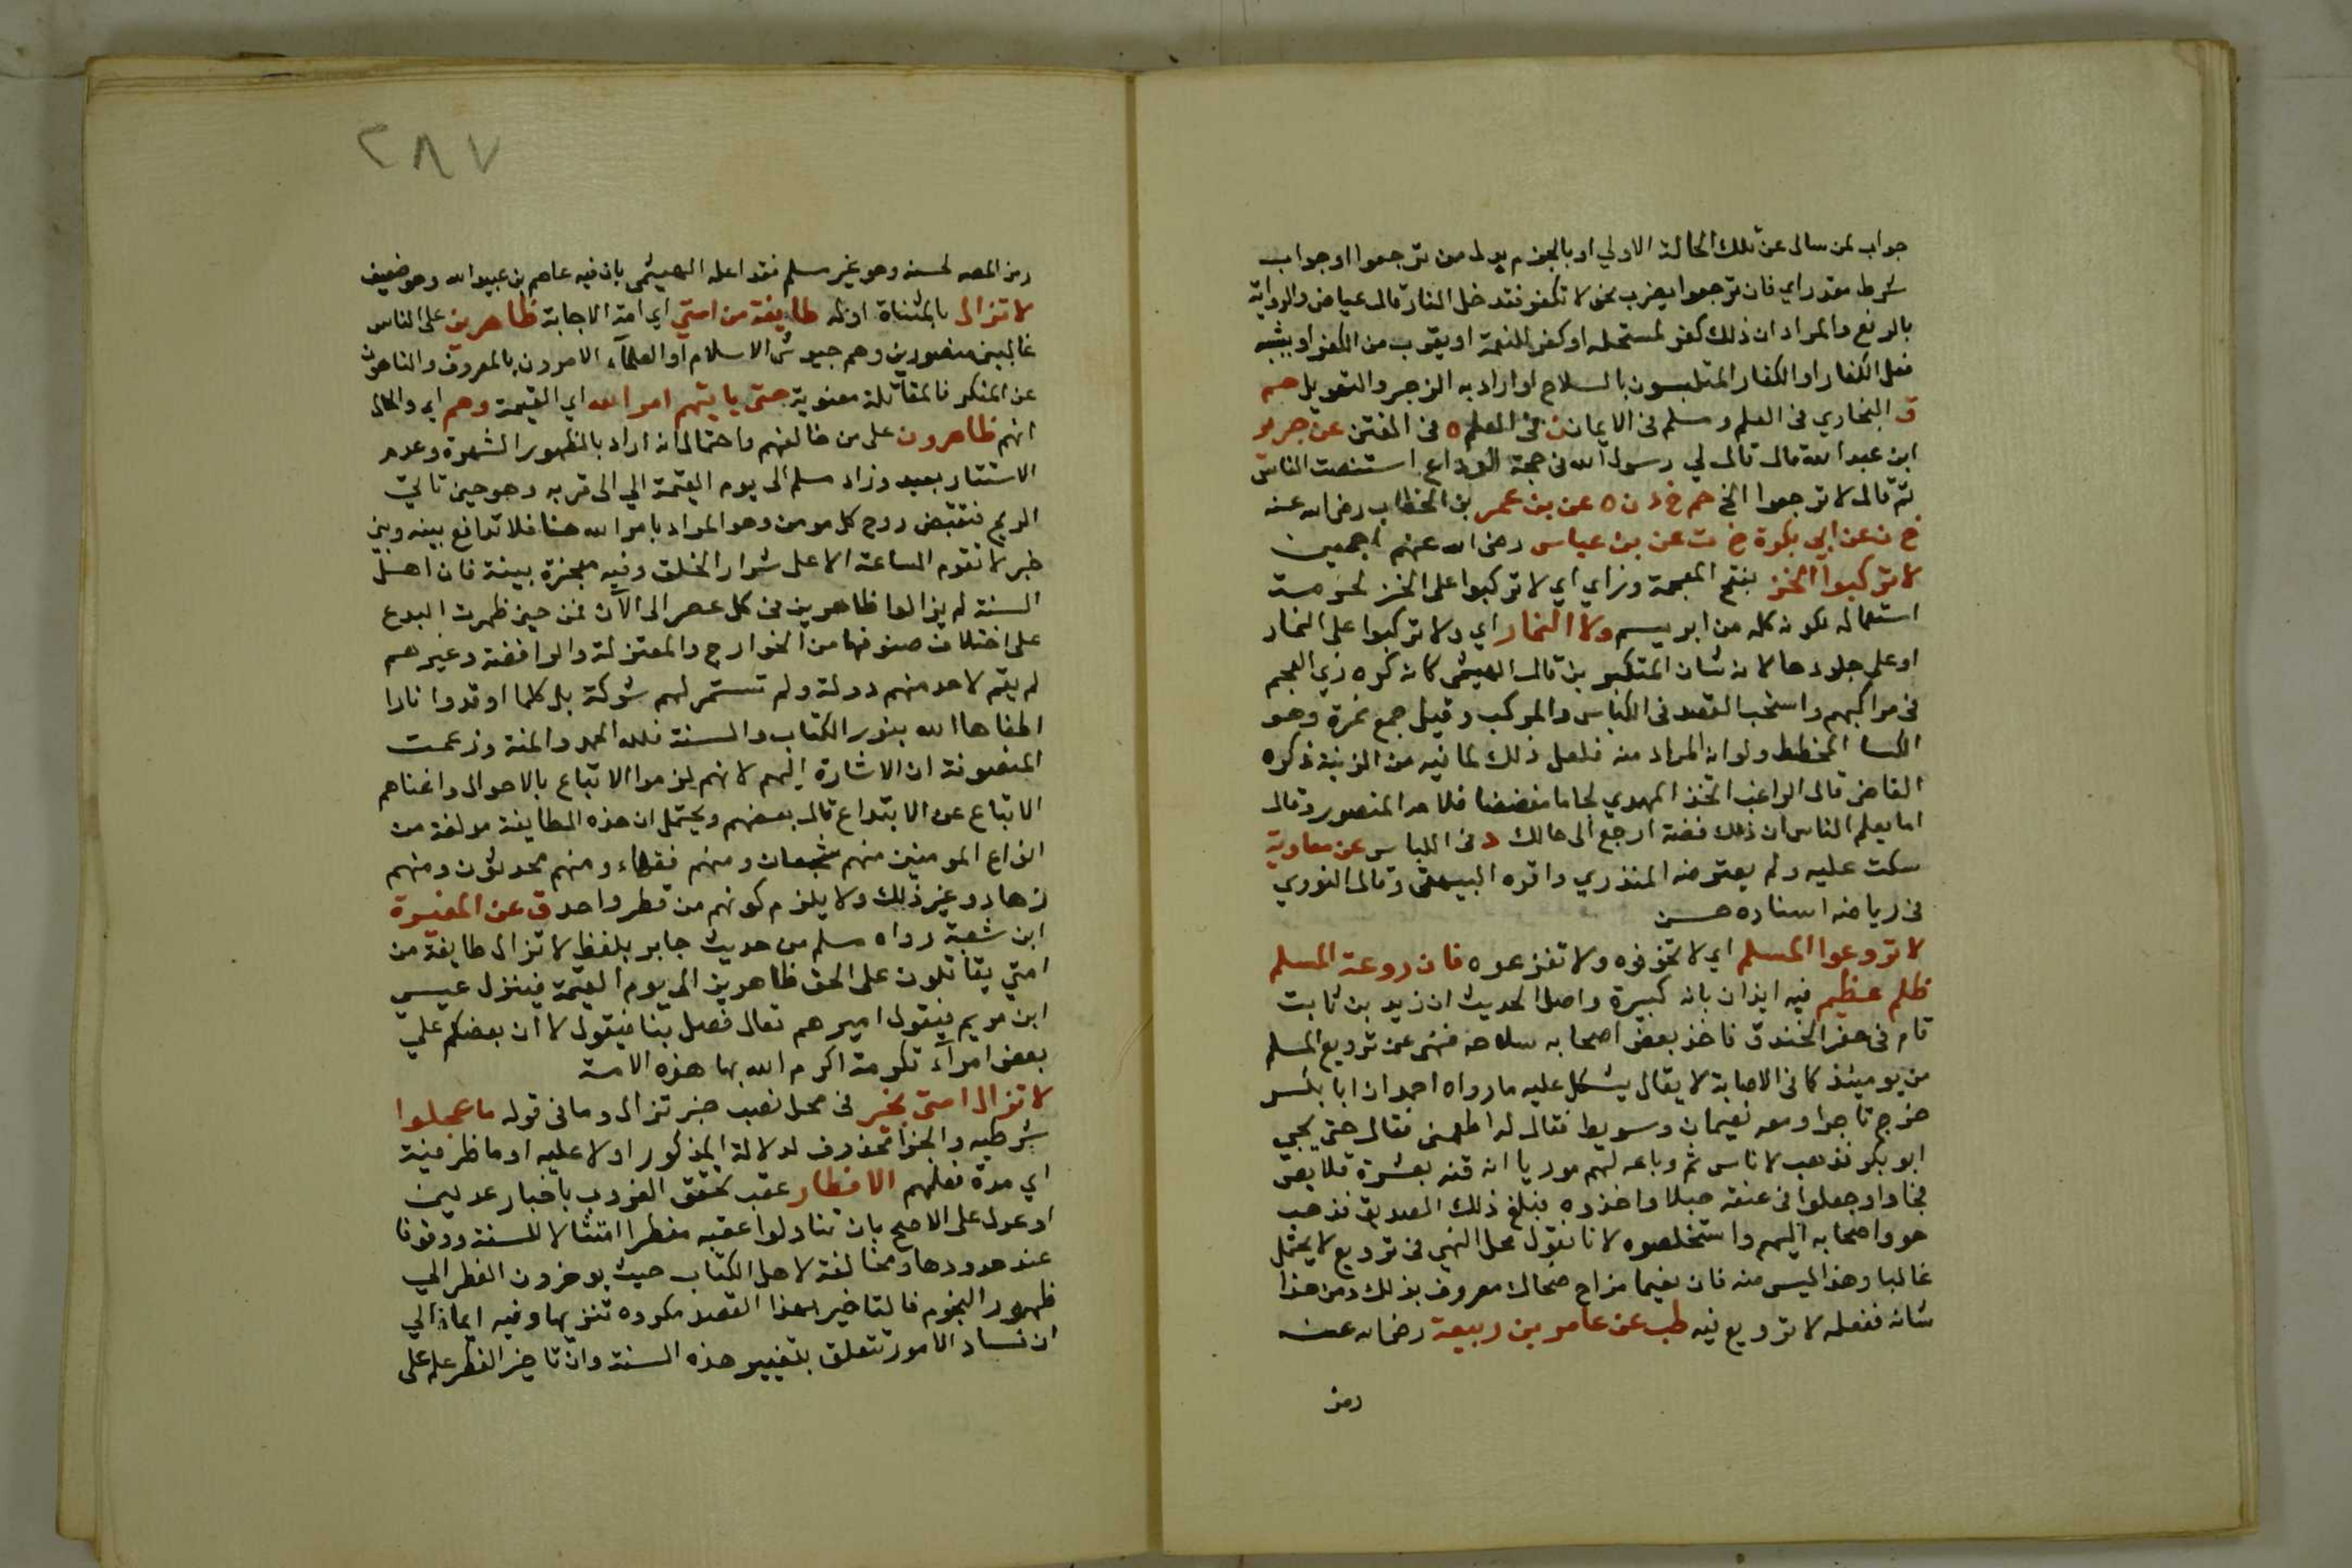 جواب لمن سال عن تلك الحالة الاولي او بالجزم بدل من ترجعوا او جواب
شرط مقدر اي فان ترجعوا يضرب نحو لا تكفر فتدخل النار قال عياض والرواية
بالرفع والمراد ان ذلك كفر لمستحله او كفر للنعمة او يقرب من الكفر او يشبه
فعل الكفار او الكفار المتلبسون بالسلاح او اراد به الزجر والتهويل حم
ق البخاري في العلم ومسلم في الايمان ن في العلم ه في الفتن عن جرير
ابن عبد الله قال قال لي رسول الله في حجة الوداع استنصت الناس
ثم قال لا ترجعوا الخ حم خ د ن ه عن بن عمر بن الخطاب رضي الله عنه
خ ن عن ابي بكرة خ ت عن بن عباس رضي الله عنهم اجمعين
لا تركبوا الخز بفتح المعجمة وزاي اي لا تركبوا على الخز لحرمة
استعماله لكونه كله من ابريسم ولا النمار اي ولا تركبوا على النمار
او على جلودها لانه شان المتكبرين قال الهيثمي كانه كره زي العجم
في مراكبهم واستحب القصد في اللباس والمركب وقيل جمع نمرة وهو
الكسا المخطط ولو انه المراد منه فلعل ذلك لما فيه من الزينة ذكره
القاضي قال الراغب اتخذ المهدي لجاما مفضضا فلاحه المنصور وقال
اما يعلم الناس ان ذلك فضة ارجع الى حالك د في اللباس عن معاوية
سكت عليه ولم يعترضه المنذري واقره البيهقي وقال النووي
في رياضه اسناده حسن
لا تروعوا المسلم اي لا تخوفوه ولا تفزعوه فان روعة المسلم
ظلم عظيم فيه ايذان بانه كبيرة واصل الحديث ان زيد بن ثابت
نام في حفر الخندق فاخذ بعض اصحابه سلاحه فنهى عن ترويع المسلم
من يومئذ كما في الاصابة لا يقال يشكل عليه ما رواه احمد ان ابا بكر
خرج تاجرا ومعه نعيمان وسويبط فقال له اطعمني فقال حتى يجي
ابو بكر فذهب لاناس ثم وباعه لهم موريا انه قنه بعشرة قلايص
فجاوا وجعلوا في عنقه حبلا واخذوه فبلغ ذلك الصديق فذهب
هو واصحابه اليهم واستخلصوه لانا نقول محل النهي في ترويع لا يحتمل
غالبا وهذا ليس منه فان نعيما مزاح ضحاك معروف بذلك ومن هذا
شانه ففعله لا ترويع فيه طب عن عامر بن ربيعة رضي الله عنه
رمز
٢٨٧
رمز المص لحسنه وهو غير مسلم فقد اعله الهيثمي بان فيه عاصم بن عبيد الله وهو ضعيف
لا تزال بالمثناة اوله طايفة من امتي اي امة الاجابة ظاهرين على الناس
غالبين منصورين وهم جيوش الاسلام او العلماء الامرون بالمعروف والناهون
عن المنكر فالمقاتلة معنوية حتى ياتيهم امر الله اي القيمة وهم اي والحال
انهم ظاهرون على من خالفهم واحتمال انه اراد بالظهور الشهرة وعدم
الاستتار بعيد وزاد مسلم الى يوم القيمة اي الى قربه وهو حين تاتي
الريح فتقبض روح كل مومن وهو المراد بامر الله هنا فلا تدافع بينه وبين
خبر لا تقوم الساعة الا على شرار الخلق وفيه معجزة بينة فان اهل
السنة لم يزالوا ظاهرين في كل عصر الى الآن فمن حين ظهرت البدع
على اختلاف صنوفها من الخوارج والمعتزلة والرافضة وغيرهم
لم يقم لاحد منهم دولة ولم تستمر لهم شوكة بل كلما اوقدوا نارا
اطفاها الله بنور الكتاب والسنة فلله الحمد والمنة وزعمت
المتصوفة ان الاشارة اليهم لانهم لزموا الاتباع بالاحوال واغناهم
الاتباع عن الابتداع قال بعضهم ويحتمل ان هذه الطايفة مولفة من
انواع المومنين منهم شجعان ومنهم فقهاء ومنهم محدثون ومنهم
زهاد وغير ذلك ولا يلزم كونهم من قطر واحد ق عن المغيرة
ابن شعبة رواه مسلم من حديث جابر بلفظ لا تزال طايفة من
امتي يقاتلون على الحق ظاهرين الى يوم القيمة فينزل عيسى
ابن مريم فيقول اميرهم تعال فصل بنا فيقول لا ان بعضكم علي
بعض امرآء تكرمة اكرم الله بها هذه الامة
لا تزال امتي بخير في محل نصب خبر تزال وما في قوله ما عجلوا
شرطية والجزا محذوف لدلالة المذكور اولا عليه او ما ظرفية
اي مدة فعلهم الافطار عقب تحقق الغروب باخبار عدلين
او عدل على الاصح بان تناولوا عقبه مفطرا امتثالا للسنة ووقوفا
عند حدودها ومخالفة لاهل الكتاب حيث يوخرون الفطر الي
ظهور النجوم فالتاخير بهذا القصد مكروه تنزيها وفيه ايماء الي
ان فساد الامور تتعلق بتغيير هذه السنة وان تاخير الفطر علم على